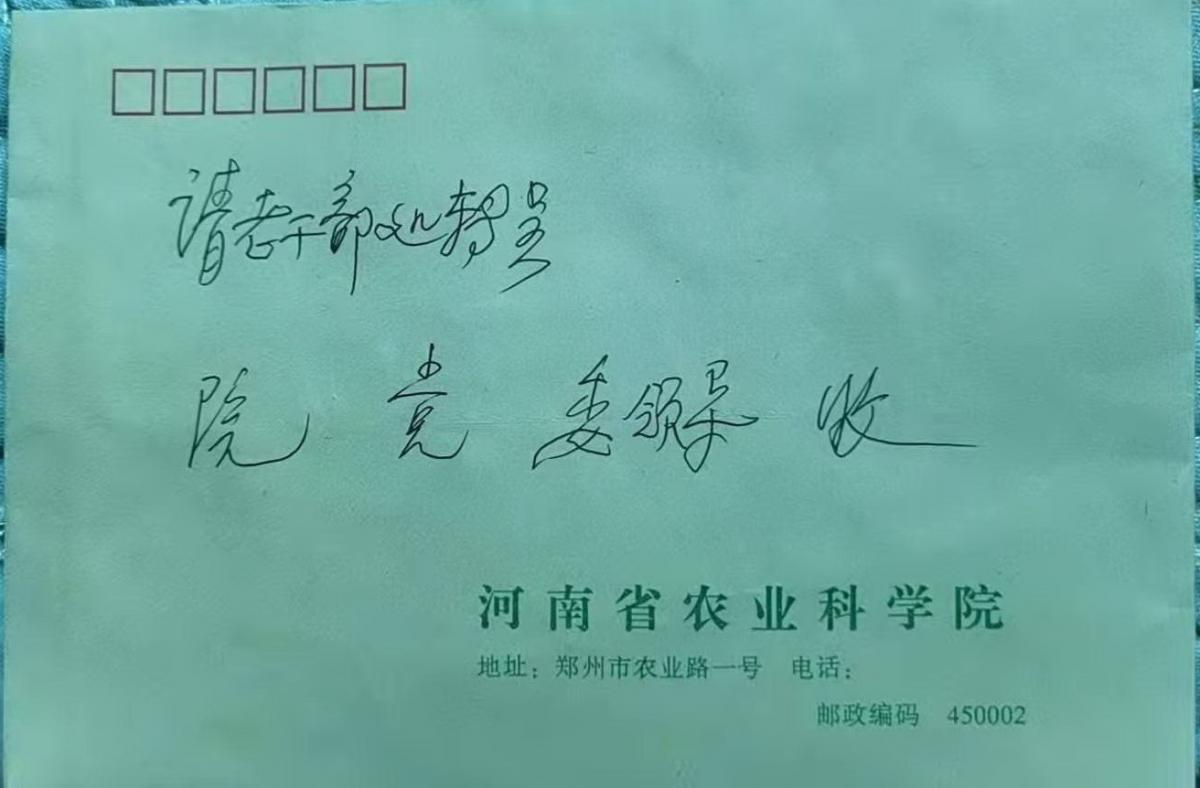 请老干部处转呈
院 党 委领导 收
河南省农业科学院
地址：郑州市农业路一号 电话：
邮政编码 450002